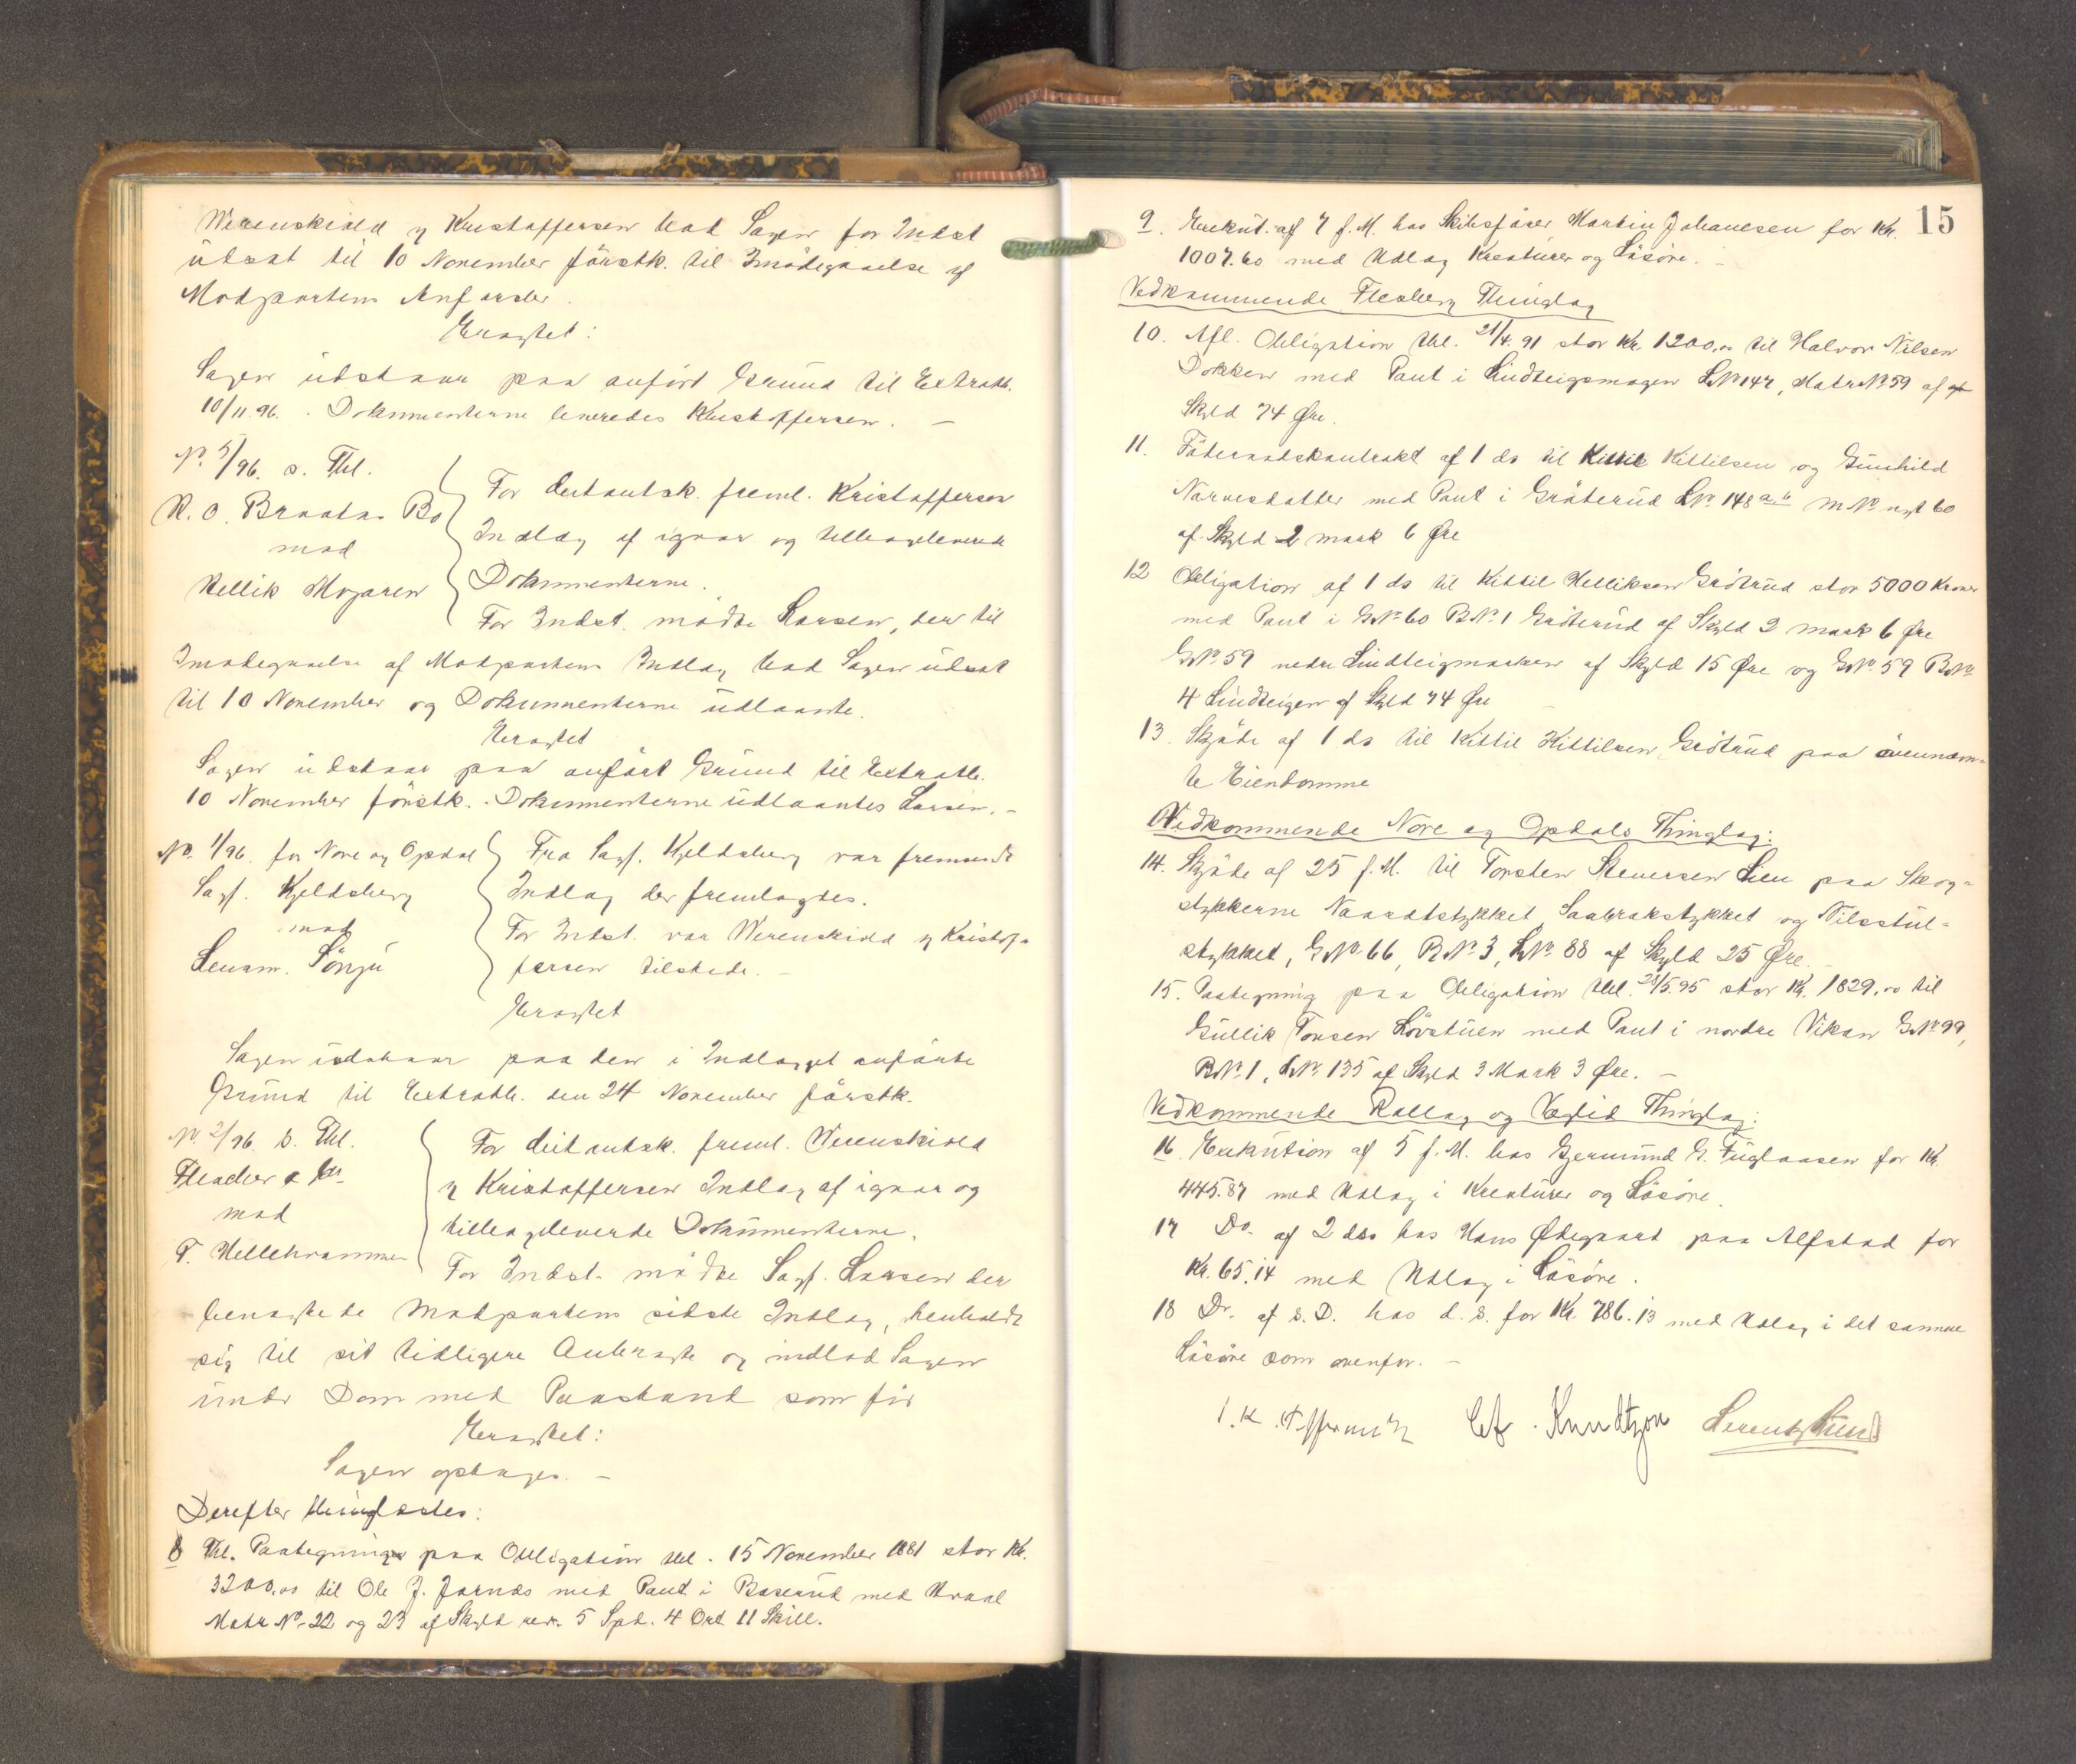 Werenskiold og Kristoffersen bad Sagen for Indst
udsat til 10 November førstk. til Imødegaaelse af
Modpartens Anførsler.
Eragtet:
Sagen udstaar paa anført Grund til Extrath.
10/11.96. Dokumenterne leveredes Kristoffersen. —
No. 5/96. s. Thl.
N. O. Braatas Bo
mod
Hellik Mogaren
For Citantsk. freml. Kristoffersen
Indlæg af igaar og tilbageleverede
Dokumenterne.
For Indst. mødte Larsen, der til
Imødegaaelse af Modpartens Indlæg bad Sagen udsat
til 10 November og Dokumenterne udlaante.
Eragtet
Sagen udstaar paa anført Grund til Extrath.
10 November førstk. Dokumenterne udlaantes Larsen. —
No. 1/96. for Nore og Opdal
Sagf. Kjeldsberg
mod
Lensm. Sönju
Fra Sagf. Kjeldsberg var fremsendt
Indlæg der fremlagdes.
For Indst. var Werenskiold og Kristof-
fersen tilstede. —
Eragtet
Sagen udstaar paa den i Indlægget anførte
Grund til Extrath. den 24 November førstk.
No. 2/96. s. Thl.
mod
T. Hellehrammen
For Citantsk. freml. Werenskiold
og Kristoffersen Indlæg af igaar og
tilbageleverede Dokumenterne.
For Indst. mødte Sagf. Larsen der
benægtede Modpartens sidste Indlæg, henholdt
sig til sit tidligere Anbragte og indlod Sagen
under Dom med Paastand som før
Eragtet:
Sagen optages. —
Derefter thinglæstes:
8 Thl. Paategning paa Obligation thl. 15 November 1881 stor Kr.
3200.00 til Ole J. Jornds med Pant i Baserud med Hvaal
Matr No. 22 og 23 af Skyld rev. 5 Spd. 4 Ort 11 Skill.
15
9. Exekut. af 7 f. M. hos Skibsfører Martin Johanesen for Kr.
1007.60 med Udlæg Kreaturer og Løsøre. —
Vedkommende Flesberg Thinglag
10. Afl. Obligation thl. 21/4.91 stor Kr. 1200.00 til Halvor Nilsen
Dokken med Pant i Lindteigsmogen LNo 147, Matr No 59 af
Skyld 74 Øre.
11. Föderaadskontrakt af 1 ds til Kittil Kittilsen og Gunhild
Narvesdatter med Pant i Gröterud LNo. 148 a, b M No nyt 60
af Skyld 2 mark 6 Øre
12 Obligation af 1 ds til Kittil Helliksen Grötrud stor 5000 Kroner
med Pant i GNo 60 BNo 1 Gröterud af Skyld 2 mark 6 Øre
GNo. 59 nedre Lindteigmarken af Skyld 15 Øre og GNo. 59 BNo
4 Lindteigen af Skyld 74 Øre
13. Skjöde af 1 ds til Kittil Kittilsen Grötrud paa ovennævn-
te Eiendomme
Vedkommende Nore og Opdals Thinglag:
14. Skjöde af 25 f. M. til Torsten Steversen Lien paa Skog-
stykkerne Naasdtstykket Saabrakstykket og Nilsstul-
stykket, GNo 66, BNo 3, LNo. 88 af Skyld 25 Øre.
15. Paategning paa Obligation thl. 28/5.95 stor Kr. 1829.00 til
Gullik Tonsen Lövstuen med Pant i nordre Vikan GNo 99,
BNo. 1, LNo. 135 af Skyld 3 Mark 3 Øre. —
Vedkommende Rollag og Væglid Thinglag:
16. Exekution af 5 f. M. hos Gjermund G. Fuglaasen for Kr.
445.87 med Udlæg i Kreaturer og Løsøre.
17 Do. af 2 ds hos Hans Ødegaard paa Alfstad for
Kr. 65.14 med Udlæg i Løsøre.
18 Do. af s. D. hos d. s. for Kr. 786.13 med Udlæg i det samme
Løsøre som ovenfor. —
Chr. Knudtzon Lorentz Lund